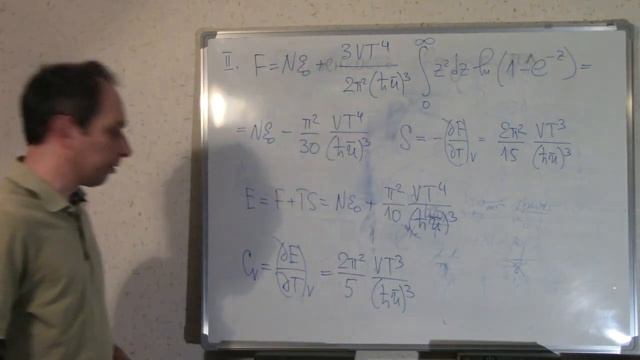 II. F = Nε₀ + 3VT⁴ / 2π²(ħū)³ ∫₀^∞ z²dz ln(1 - e⁻ᶻ) =
= Nε₀ - π²/30 VT⁴/(ħū)³ S = -(∂F/∂T)ᵥ = 2π²/15 VT³/(ħū)³
E = F + TS = Nε₀ + π²/10 VT⁴/(ħū)³
Cᵥ = (∂E/∂T)ᵥ = 2π²/5 VT³/(ħū)³